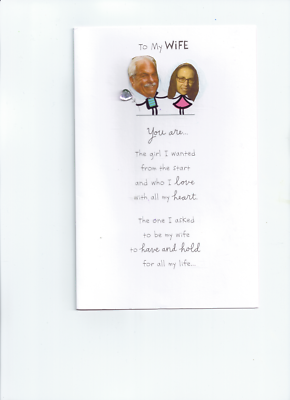 To My WiFE
You are...
The girl I wanted
from the start
and who I love
with all my heart
The one I asked
to be my wife
to have and hold
for all my life...